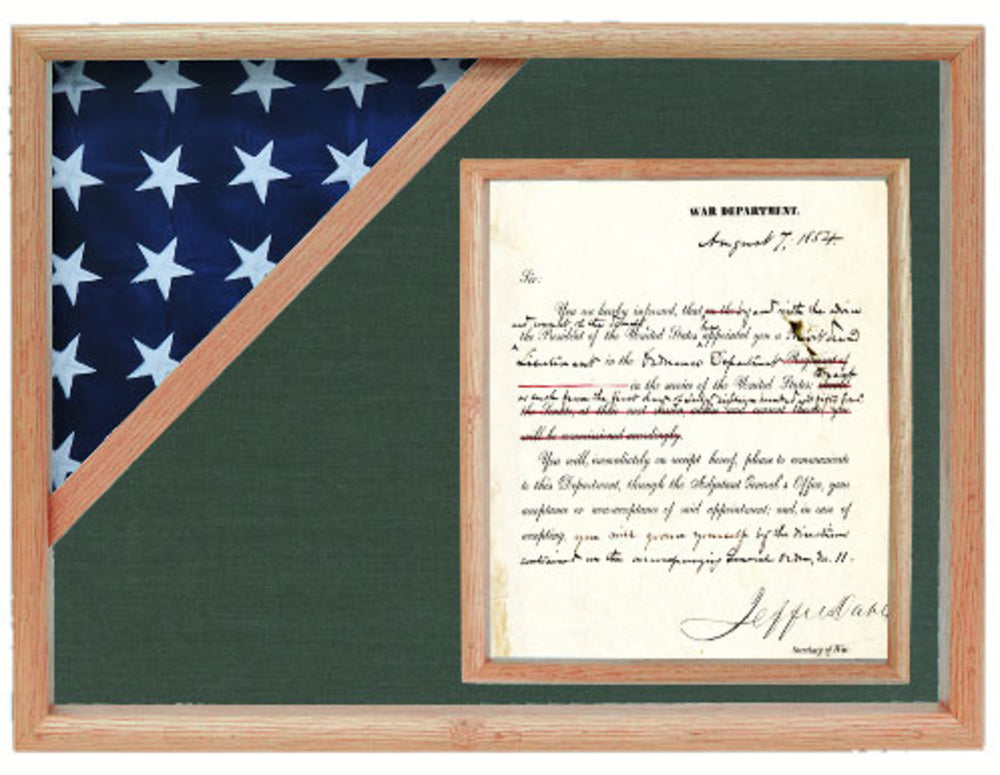 WAR DEPARTMENT.
August 7, 1854.
Sir:
You are hereby informed, that by and with the advice
and consent of the Senate
the President of the United States appointed you a
Lieutenant in the Ordnance Department Regiment of
in the service of the United States:
as such from the first day of
will be commissioned accordingly.
You will, immediately on receipt hereof, please to communicate
to this Department, through the Adjutant General's Office, your
acceptance or non-acceptance of said appointment; and, in case of
accepting, you will govern yourself by the directions
contained in the accompanying General Order, No. 11.
Jeffn Davis
Secretary of War